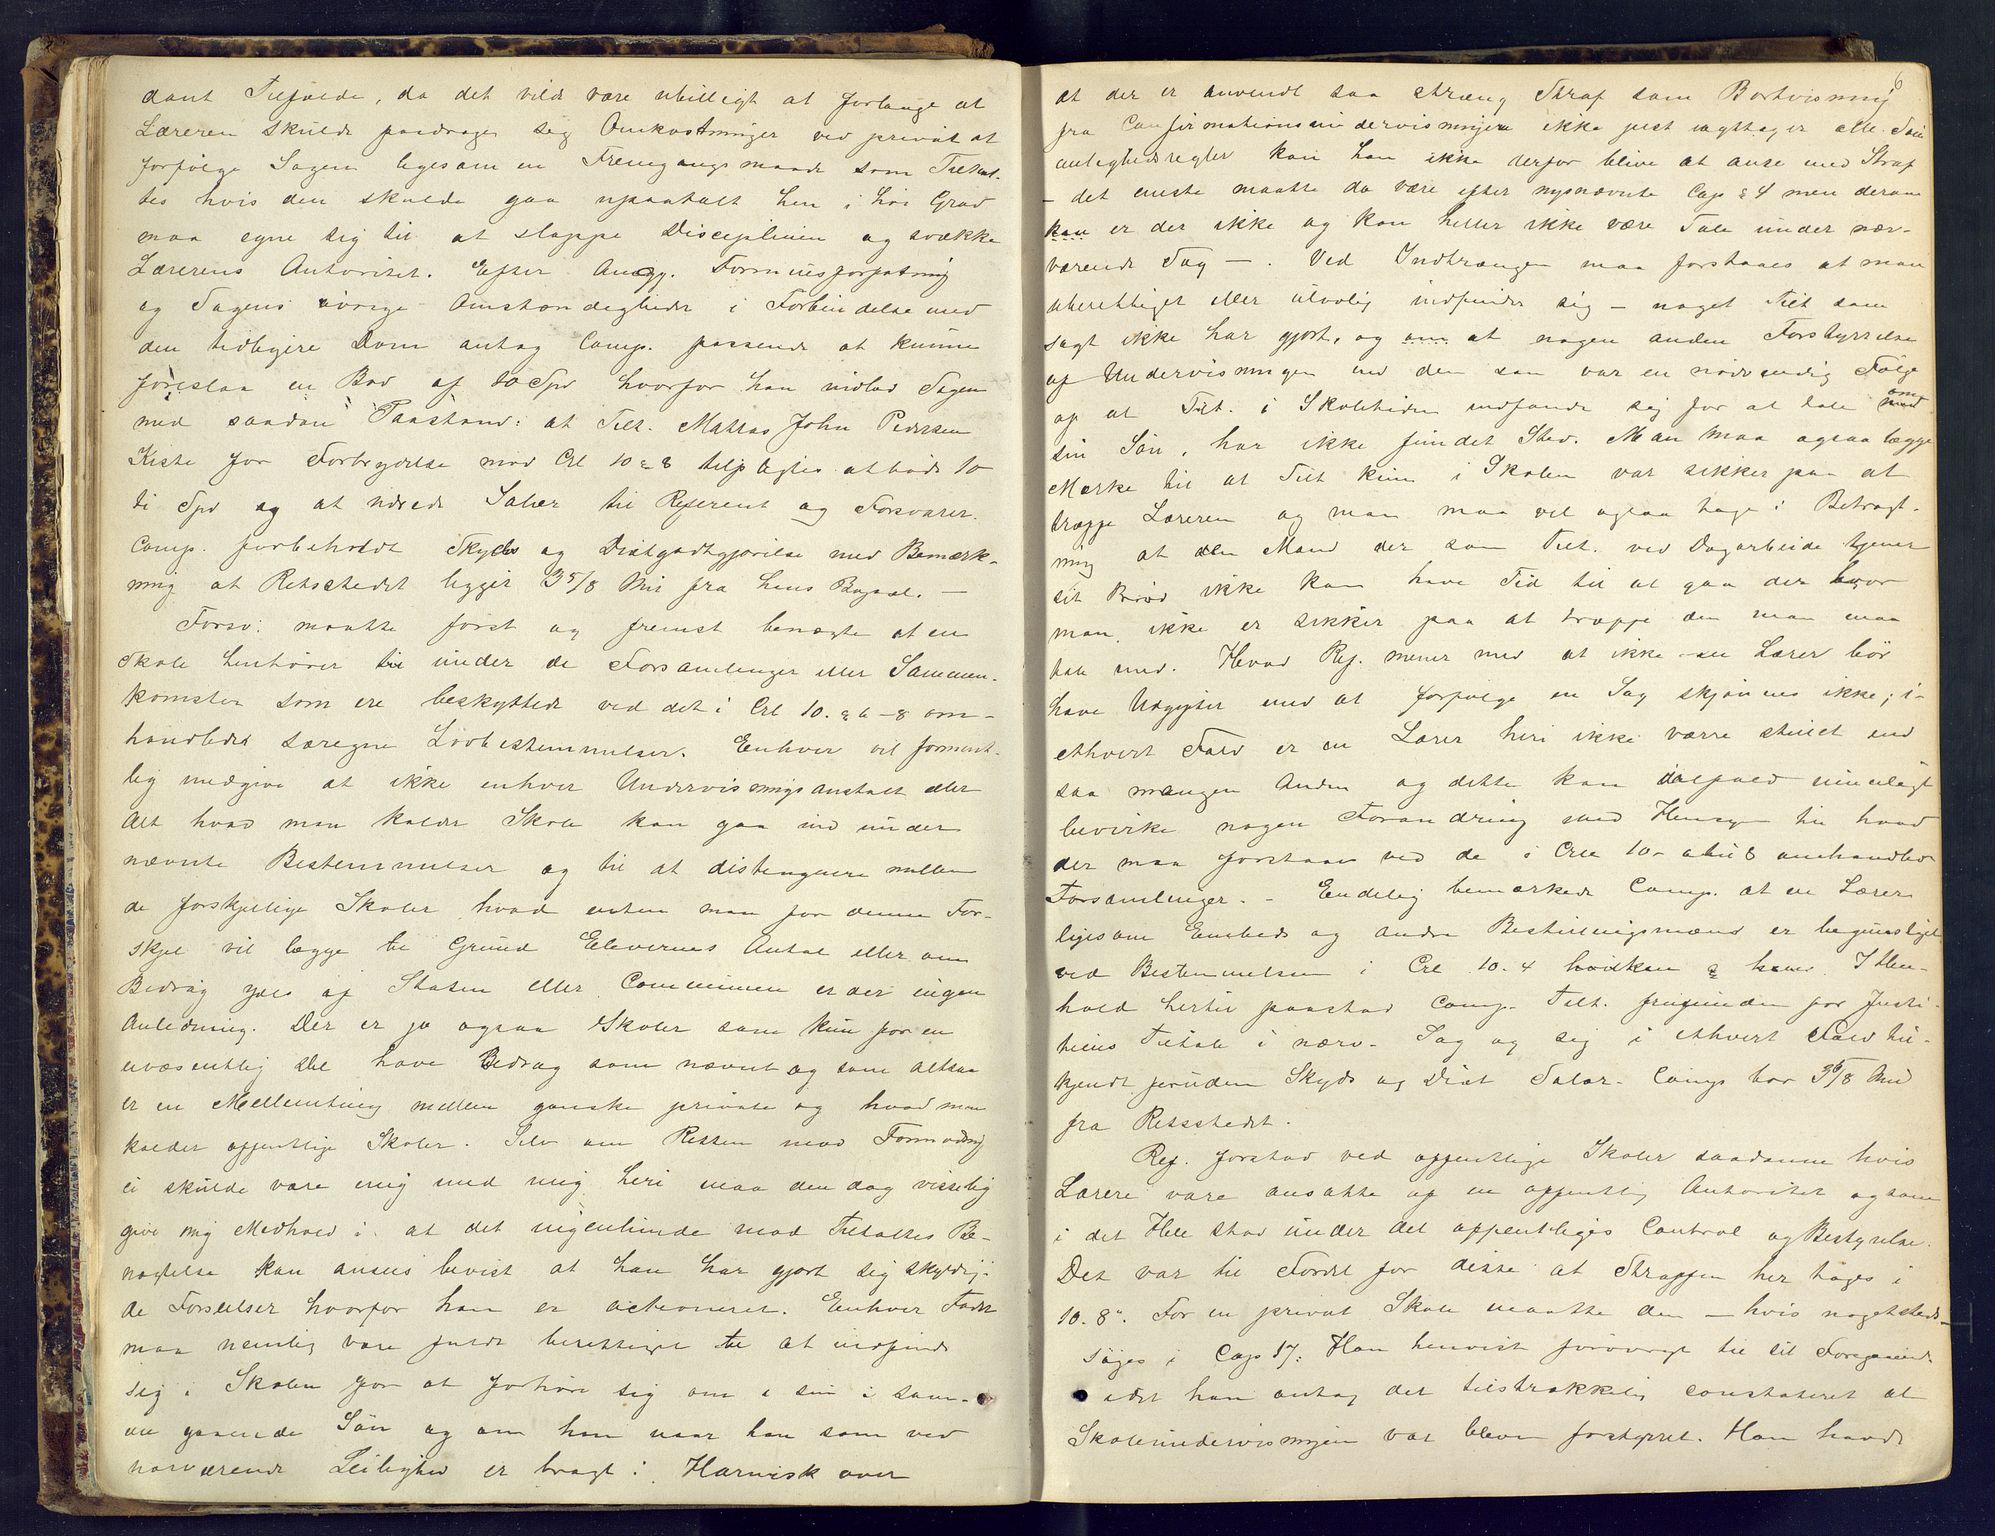 dant Tilfælde, da det vilde være ubilligt at forlange at
Læreren skulde paadrage sig Omkostninger ved privat at
forfølge Sagen ligesom en Fremgangsmaade som Tiltal-
tes hvis den skulde gaa upaatalt hen i høi Grad
maa egne sig til at slappe Disciplinen og svække
Lærerens Autoritet. Efter Angj. Formuesforfatning
og Sagens øvrige Omstændigheder i Forbindelse med
den tidligere Dom antog Comp. passende at kunne
foreslaa en Bod af 10 Spd hvorfor han indlod Sagen
med saadan Paastand: at Tilt. Mathias John Pedersen
Kiste for Forbrydelse mod Crl 10 § 8 tilpligtes at bøde 10
ti Spd og at udrede Salær til Referent og Forsvarer.
Comp. forbeholdt Skyds og Diætgodtgjørelse med Bemærk-
ning at Retsstedet ligger 3 5/8 Mil fra hans Bopæl. —
Forsv: maatte først og fremst benægte at en
Skole henhører til under de Forsamlinger eller Sammen-
komster som ere beskyttede ved det i Crl 10. § 6-8 om-
handlede særegne Lovbestemmelser. Enhver vil forment-
lig medgive at ikke enhver Undervisningsanstalt eller
Alt hvad man kalder Skole kan gaa ind under
nævnte Bestemmelser og til at distingvere mellem
de forskjellige Skoler hvad enten man for denne For-
skjel vil lægge til Grund Elevernes Antal eller om
Bidrag ydes af Staten eller Communen er der ingen
Anledning. Der er jo ogsaa Skoler som kun for en
uvæsentlig Del have Bidrag som nævnt og som altsaa
er en Mellemting mellem ganske private og hvad man
kalder offentlige Skoler. Selv om Retten mod Formodning
ei skulde være enig med mig heri maa den dog visselig
give mig Medhold i at det ingenlunde mod Tiltaltes Be-
nægtelse kan ansees bevist at han har gjort sig skyldig i
de Forseelser hvorfor han er actioneret. Enhver Fader
maa nemlig være fuldt berettiget til at indfinde
sig i Skolen for at forhøre sig om sin i sam-
me gaaende Søn og om han naar han som ved
nærværende Leilighed er bragt i Harnisk over
6
at der er anvendt saa stræng Straf som Bortvisning
fra Confirmationsundervisningen ikke just iagttager alle Søm
melighedsregler kan han ikke derfor blive at anse med Straf
- det eneste maatte da være efter nysnævnte Cap § 4 men derom
kan er der ikke og kan heller ikke være Tale under nær-
værende Sag —. Ved Indtrængen maa forstaaes at man
uberettiget eller ulovlig indfinder sig - noget Tilt som
sagt ikke har gjort, og om at nogen anden Forstyrrelse
af Undervisningen end den som var en nødvendig Følge
af at Tilt. i Skoletiden indfandt sig for at tale om
med
sin Søn, har ikke fundet Sted. Man maa ogsaa lægge
Mærke til at Tilt kun i Skolen var sikker paa at
træffe Læreren og man maa vel ogsaa tage i Betragt-
ning at den Mand der som Tilt. ved Dagarbeide tjener
sit Brød ikke kan have Tid til at gaa der hvor
man ikke er sikker paa at træffe den man maa
tale med. Hvad Ref. mener med at ikke en Lærer bør
have Udgifter med at forfølge en Sag skjønnes ikke; i-
ethvert Fald er en Lærer heri ikke værre stillet end
saa mangen Anden og dette kan ialfald umuligt
bevirke nogen Forandring med Hensyn til hvad
der maa forstaaes ved de i Crl 10 omhandlede
Forsamlinger. - Endelig bemærkede Comp. at en Lærer
ligesom Embeds og andre Bestillingsmænd er begunstiget
ved Bestemmelsen i Crl 10. 4 I Hen-
hold hertil paastod Comp. Tilt. frifunden for Justi-
tiens Tiltale i nærv. Sag og sig i ethvert Fald til-
kjendt foruden Skyds og Diæt Salær. Comp bor 3 5/8 Mil
fra Retsstedet.
Ref. forstod ved offentlige Skoler saadanne hvis
Lærere vare ansatte af en offentlig Autoritet og som
i det Hele stod under det offentliges Control og Bestyrelse.
Det var til Fordel for disse at Straffen her tages i
10. 8. For en privat Skole maatte den - hvis nogetsteds -
søges i Cap 17. Han henviste forøvrigt til sit Foregaaende
idet han antog det tilstrækkelig constateret at
Skoleundervisningen var bleven forstyrret. Han havde